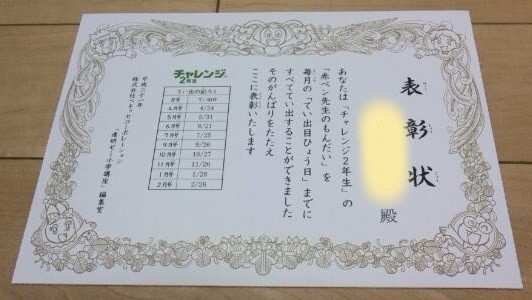 表彰状
殿
あなたは「チャレンジ2年生」の
「赤ペン先生のもんだい」を
毎月の「てい出目ひょう日」までに
すべててい出することができました
そのがんばりをたたえ
ここに表彰いたします
チャレンジ
2年生
てい出の記ろく
4月号 4/24
5月号 5/31
6月号 6/21
7月号 7/25
9月号 9/26
10月号 10/27
11月号 11/26
1月号 1/28
2月号 2/26
平成二十一年
株式会社ベネッセコーポレーション
「進研ゼミ小学講座」編集室